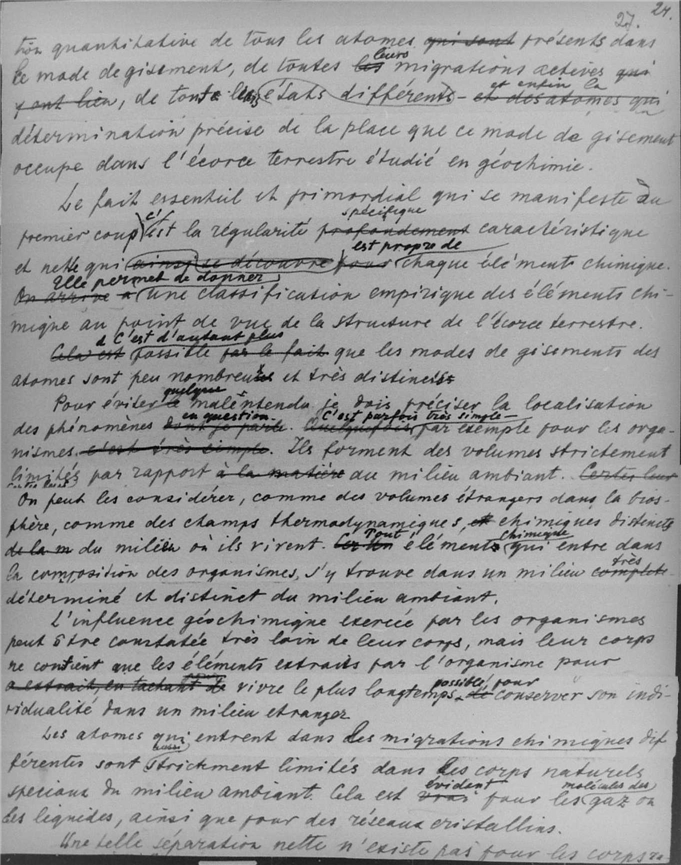 27. 24.
tion quantitative de tous les atomes qui sont présents dans
le mode de gisement, de toutes les leurs migrations actives qui
y ont lieu, de tout les états différents - et des atomes qui et enfin la
détermination précise de la place que ce mode de gisement
occupe dans l'écorce terrestre étudié en géochimie.
Le fait essentiel et primordial qui se manifeste au
premier coup c'est la régularité profondement spécifique caractéristique
et nette qui ainsi se découvre pour est propre de chaque éléments chimique.
On arrive a Elle permet de donner une classification empirique des éléments chi-
mique au point de vue de la structure de l'écorce terrestre.
Cela est C'est d'autant plus possible par le fait que les modes de gisements des
atomes sont peu nombreux et très distincts
Pour éviter quelque malentendu je dois préciser la localisation
des phénomènes dont je parle en question. Quelquefois C'est parfois très simple par exemple pour les orga-
nismes c'est très simple. Ils forment des volumes strictement
limités par rapport à la matière du milieu ambiant. Certes leur
On peut les considérer, comme des volumes étrangers dans la bios-
phère, comme des champs thermodynamiques, et chimiques distincts
de la m du milieu où ils vivent. Tout éléments chimique qui entre dans
la composition des organismes, s'y trouve dans un milieu complet très
déterminé et distinct du milieu ambiant.
L'influence géochimique exercée par les organismes
peut être constatée très loin de leur corps, mais leur corps
ne contient que les éléments extraits par l'organisme pour
a extrait, en tachant de vivre le plus longtemps possible, pour conserver son indi-
vidualité dans un milieu etranger
Les atomes qui entrent dans les migrations chimiques dif-
férentes sont aussi strictment limités dans les corps naturels
speciaux du milieu ambiant. Cela est vrai évident pour les molécules des gaz ou
les liquides, ainsi que pour des réseaux cristallins.
Une telle séparation nette n'existe pas pour les corps